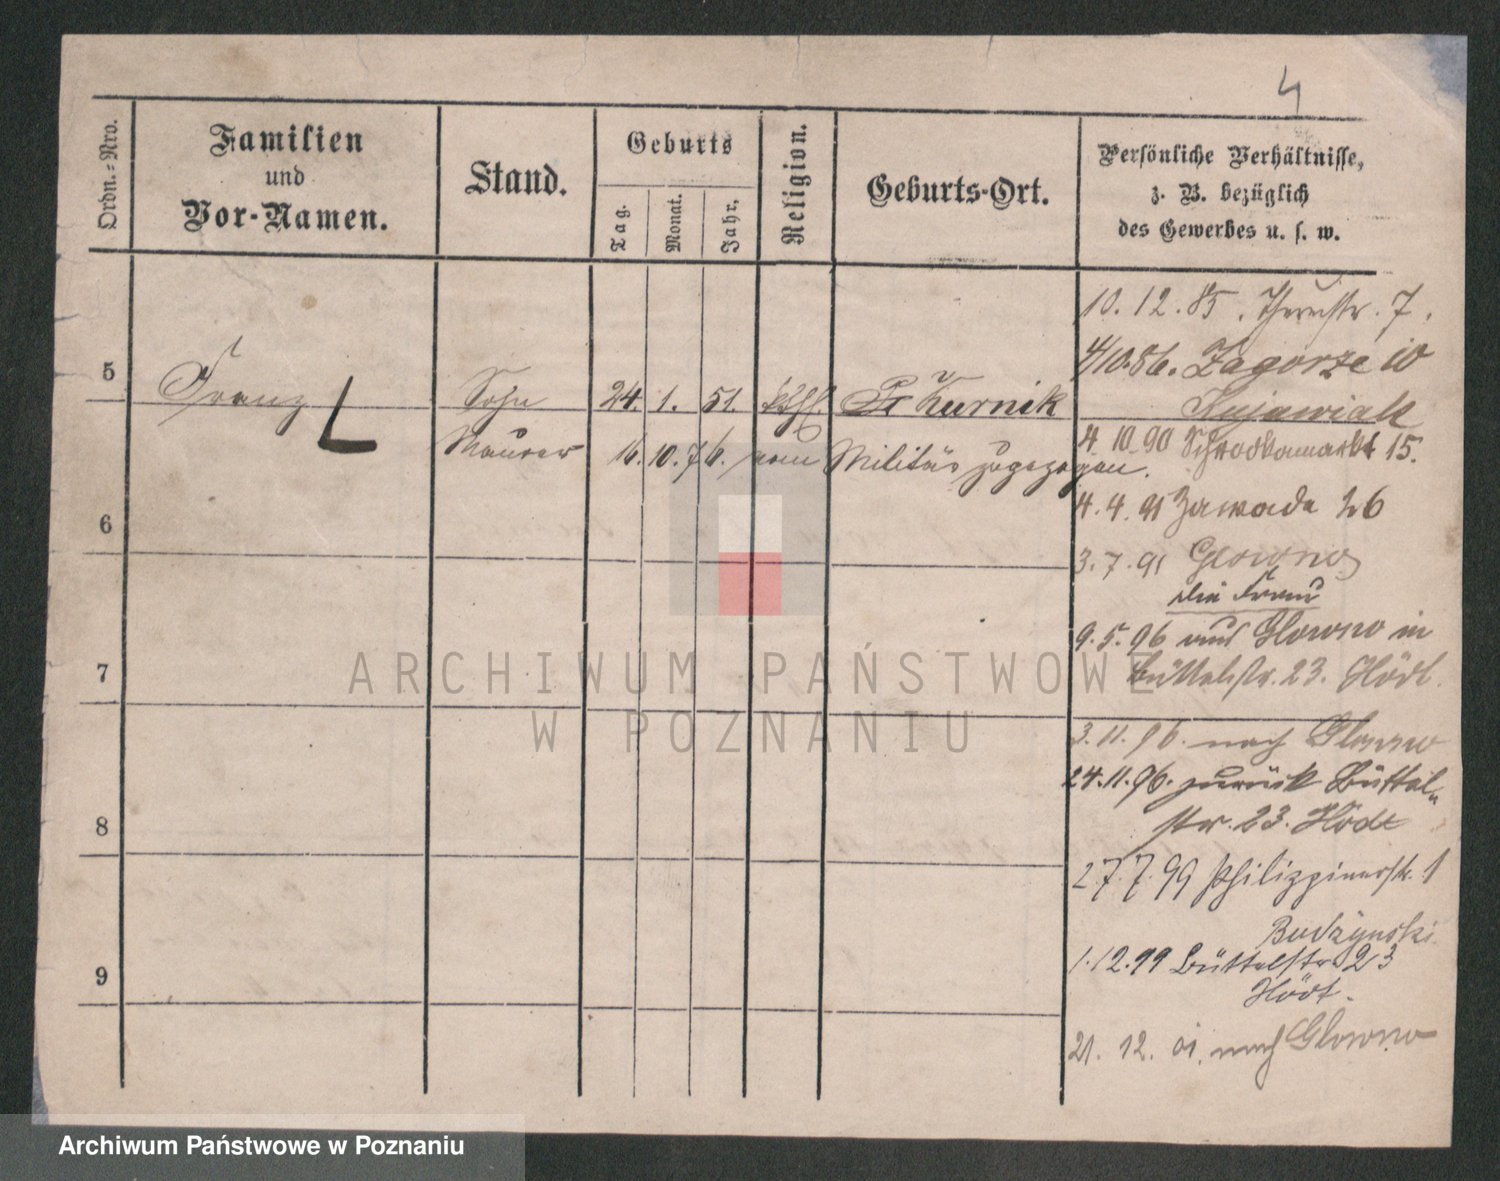 4
Ordn.-Nro.
Familien
und
Vor-Namen.
Stand.
Geburts
Tag.
Monat.
Jahr.
Religion.
Geburts-Ort.
Persönliche Verhältnisse,
z. B. bezüglich
des Gewerbes u. s. w.
10. 12. 85. Thurmstr. 7.
4/10.86. Zagorze 10
Kujawiak
5 Franz Sohn 24. 1. 51. kath. Kurnik
Maurer 16. 10. 76. vom Militär zugezogen.
4. 10. 90 Schrodkamarkt 15.
6
4. 4. 91 Zawade 26
3. 7. 91 Glowno
die Frau
9. 5. 96 aus Glowno in
7
Büttelstr. 23. Hödt.
3. 11. 96. nach Glowno
24. 11. 96. zurück Büttel
str. 23. Hödt
8
27. 7. 99 Philippinerstr. 1
Budzynski
1. 12. 99 Büttelstr. 23
9
Hödt.
21. 12. 01. nach Glowno
ARCHIWUM PAŃSTWOWE
W POZNANIU
Archiwum Państwowe w Poznaniu